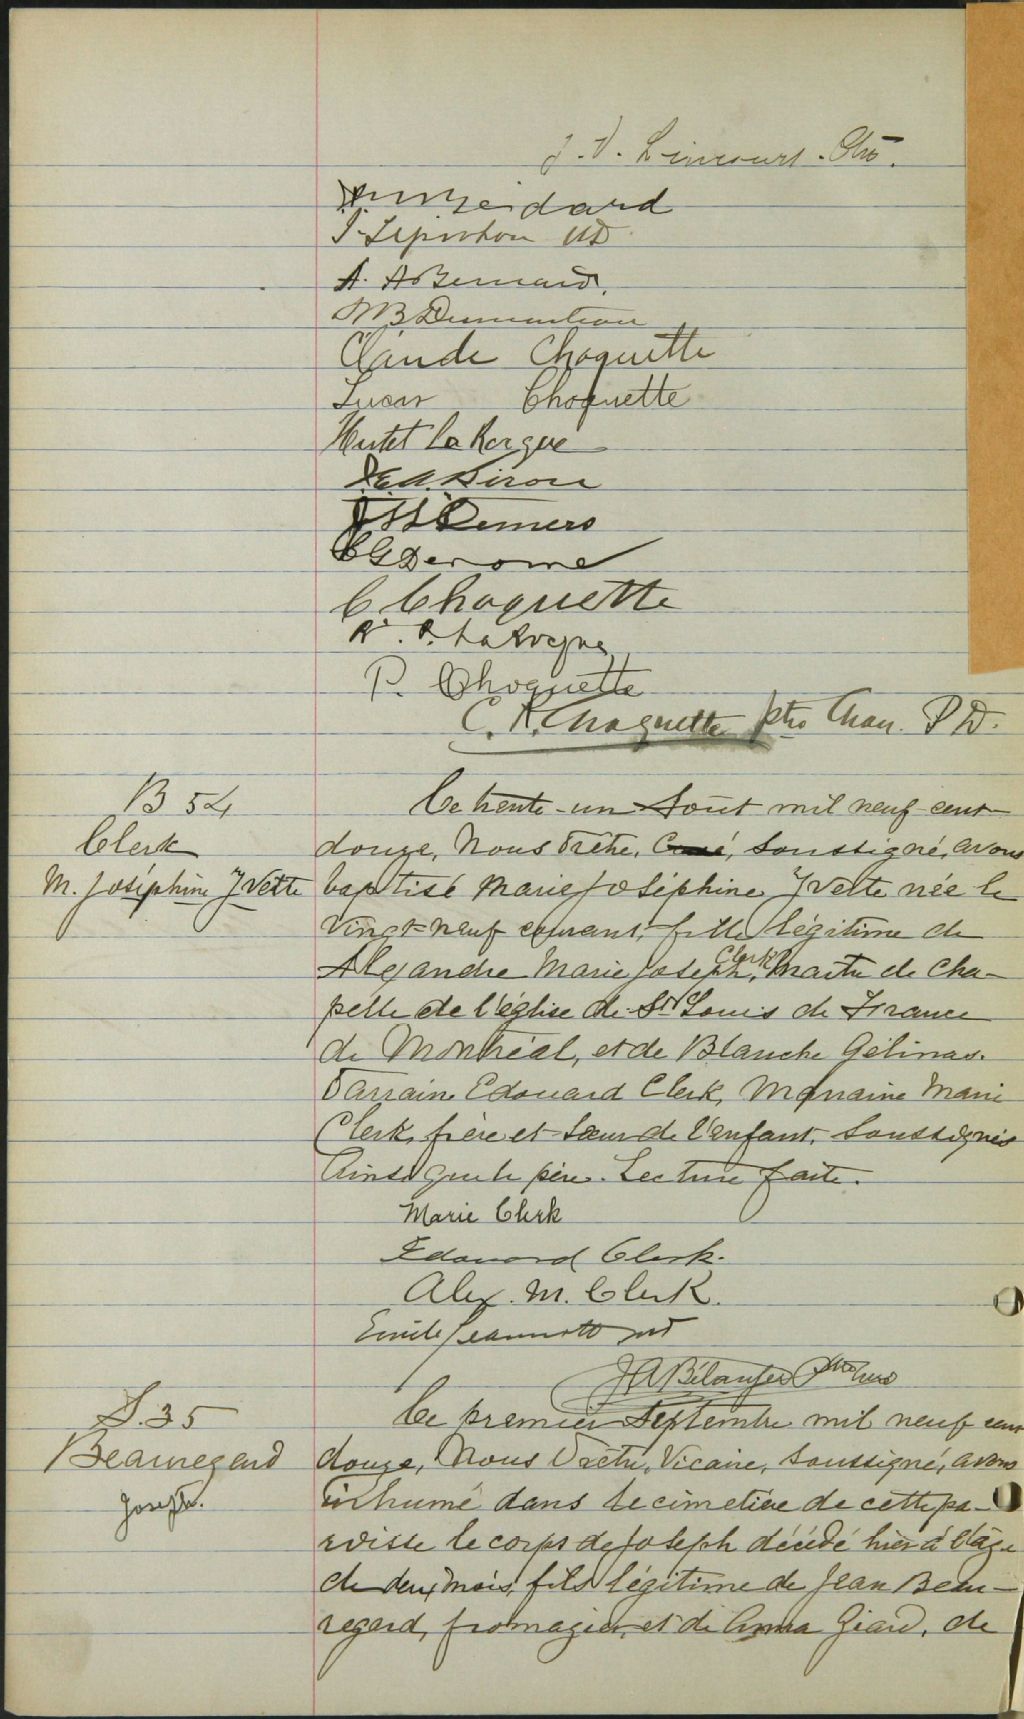 J. V. Lincourt. Ptre.
J. Lepirohon MD
A. A Bernard.
Claude Choquette
Choquette
Hertel LaRocque
J.E.A. Piron
Demers
C G Derome
C Choquette
R. P. LaRocque
P. Choquette
C. P. Choquette ptre Chan. P D.
B 54
Clerk
M. Joséphine Yvette
Le trente-un Août mil neuf cent
douze, Nous Prêtre, Curé, soussigné, avons
baptisé Marie Joséphine Yvette née le
vingt-neuf courant, fille légitime de
Alexandre Marie Joseph Clerk, Maître de Cha-
pelle de l'église de St Louis de France
de Montréal, et de Blanche Gélinas.
Parrain Edouard Clerk, Marraine Marie
Clerk, frère et sœur de l'enfant, soussignés
Ainsi que le père. Lecture faite.
Marie Clerk
Edouard Clerk.
Alex. M. Clerk.
Emile Jeannotte ptr
J A Bélanger Ptre Curé
S. 35
Beauregard
Joseph.
Le premier Septembre mil neuf cent
douze, Nous Prêtre, Vicaire, soussigné, avons
inhumé dans le cimetière de cette pa-
roisse le corps de Joseph décédé hier à l'âge
de deux mois, fils légitime de Jean Beau-
regard, fromagier, et de Anna Giard, de